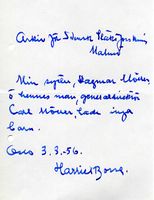 Arkiv för Svensk Släktforskning
Malmö
Min syster, Dagmar Möller
o hennes man, generaldirektör
Carl Möller, hade inga
barn.
Oslo 3.3.-56.
Harriet Bosse.